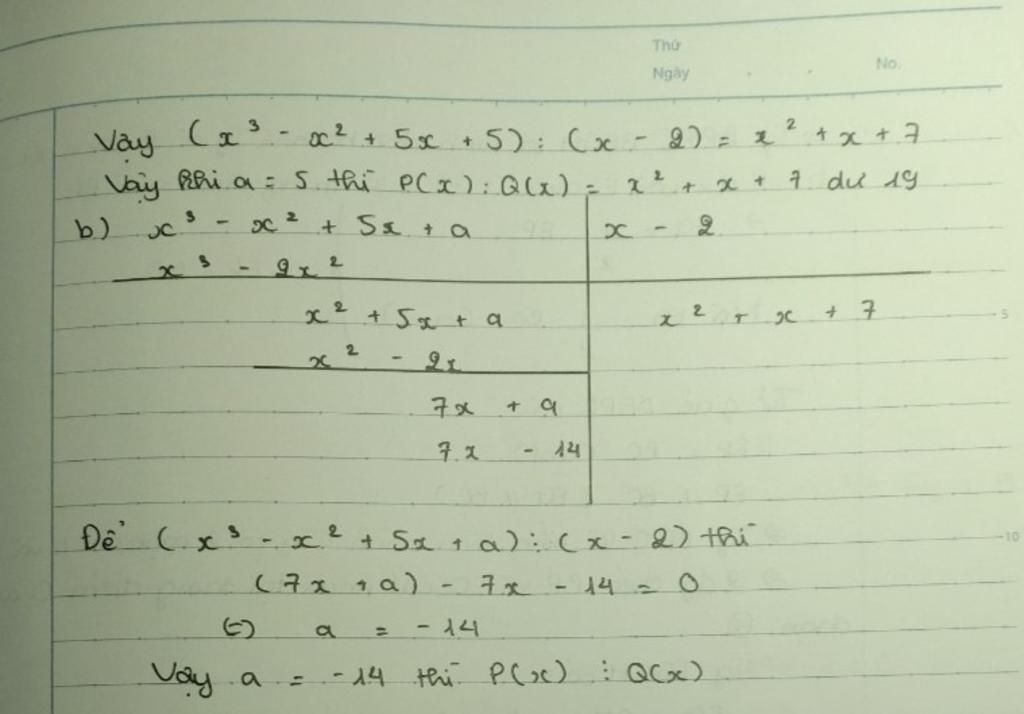 Thứ
Ngày
No.
Vậy (x³ - x² + 5x + 5) : (x - 2) = x² + x + 7
Vậy khi a = 5 thì P(x) : Q(x) = x² + x + 7 dư 19
b) x³ - x² + 5x + a x - 2
x³ - 2x²
x² + 5x + a x² + x + 7
5
x² - 2x
7x + a
7x - 14
Để (x³ - x² + 5x + a) ⋮ (x - 2) thì
10
(7x + a) - 7x - 14 = 0
(=) a = -14
Vậy a = -14 thì P(x) ⋮ Q(x)